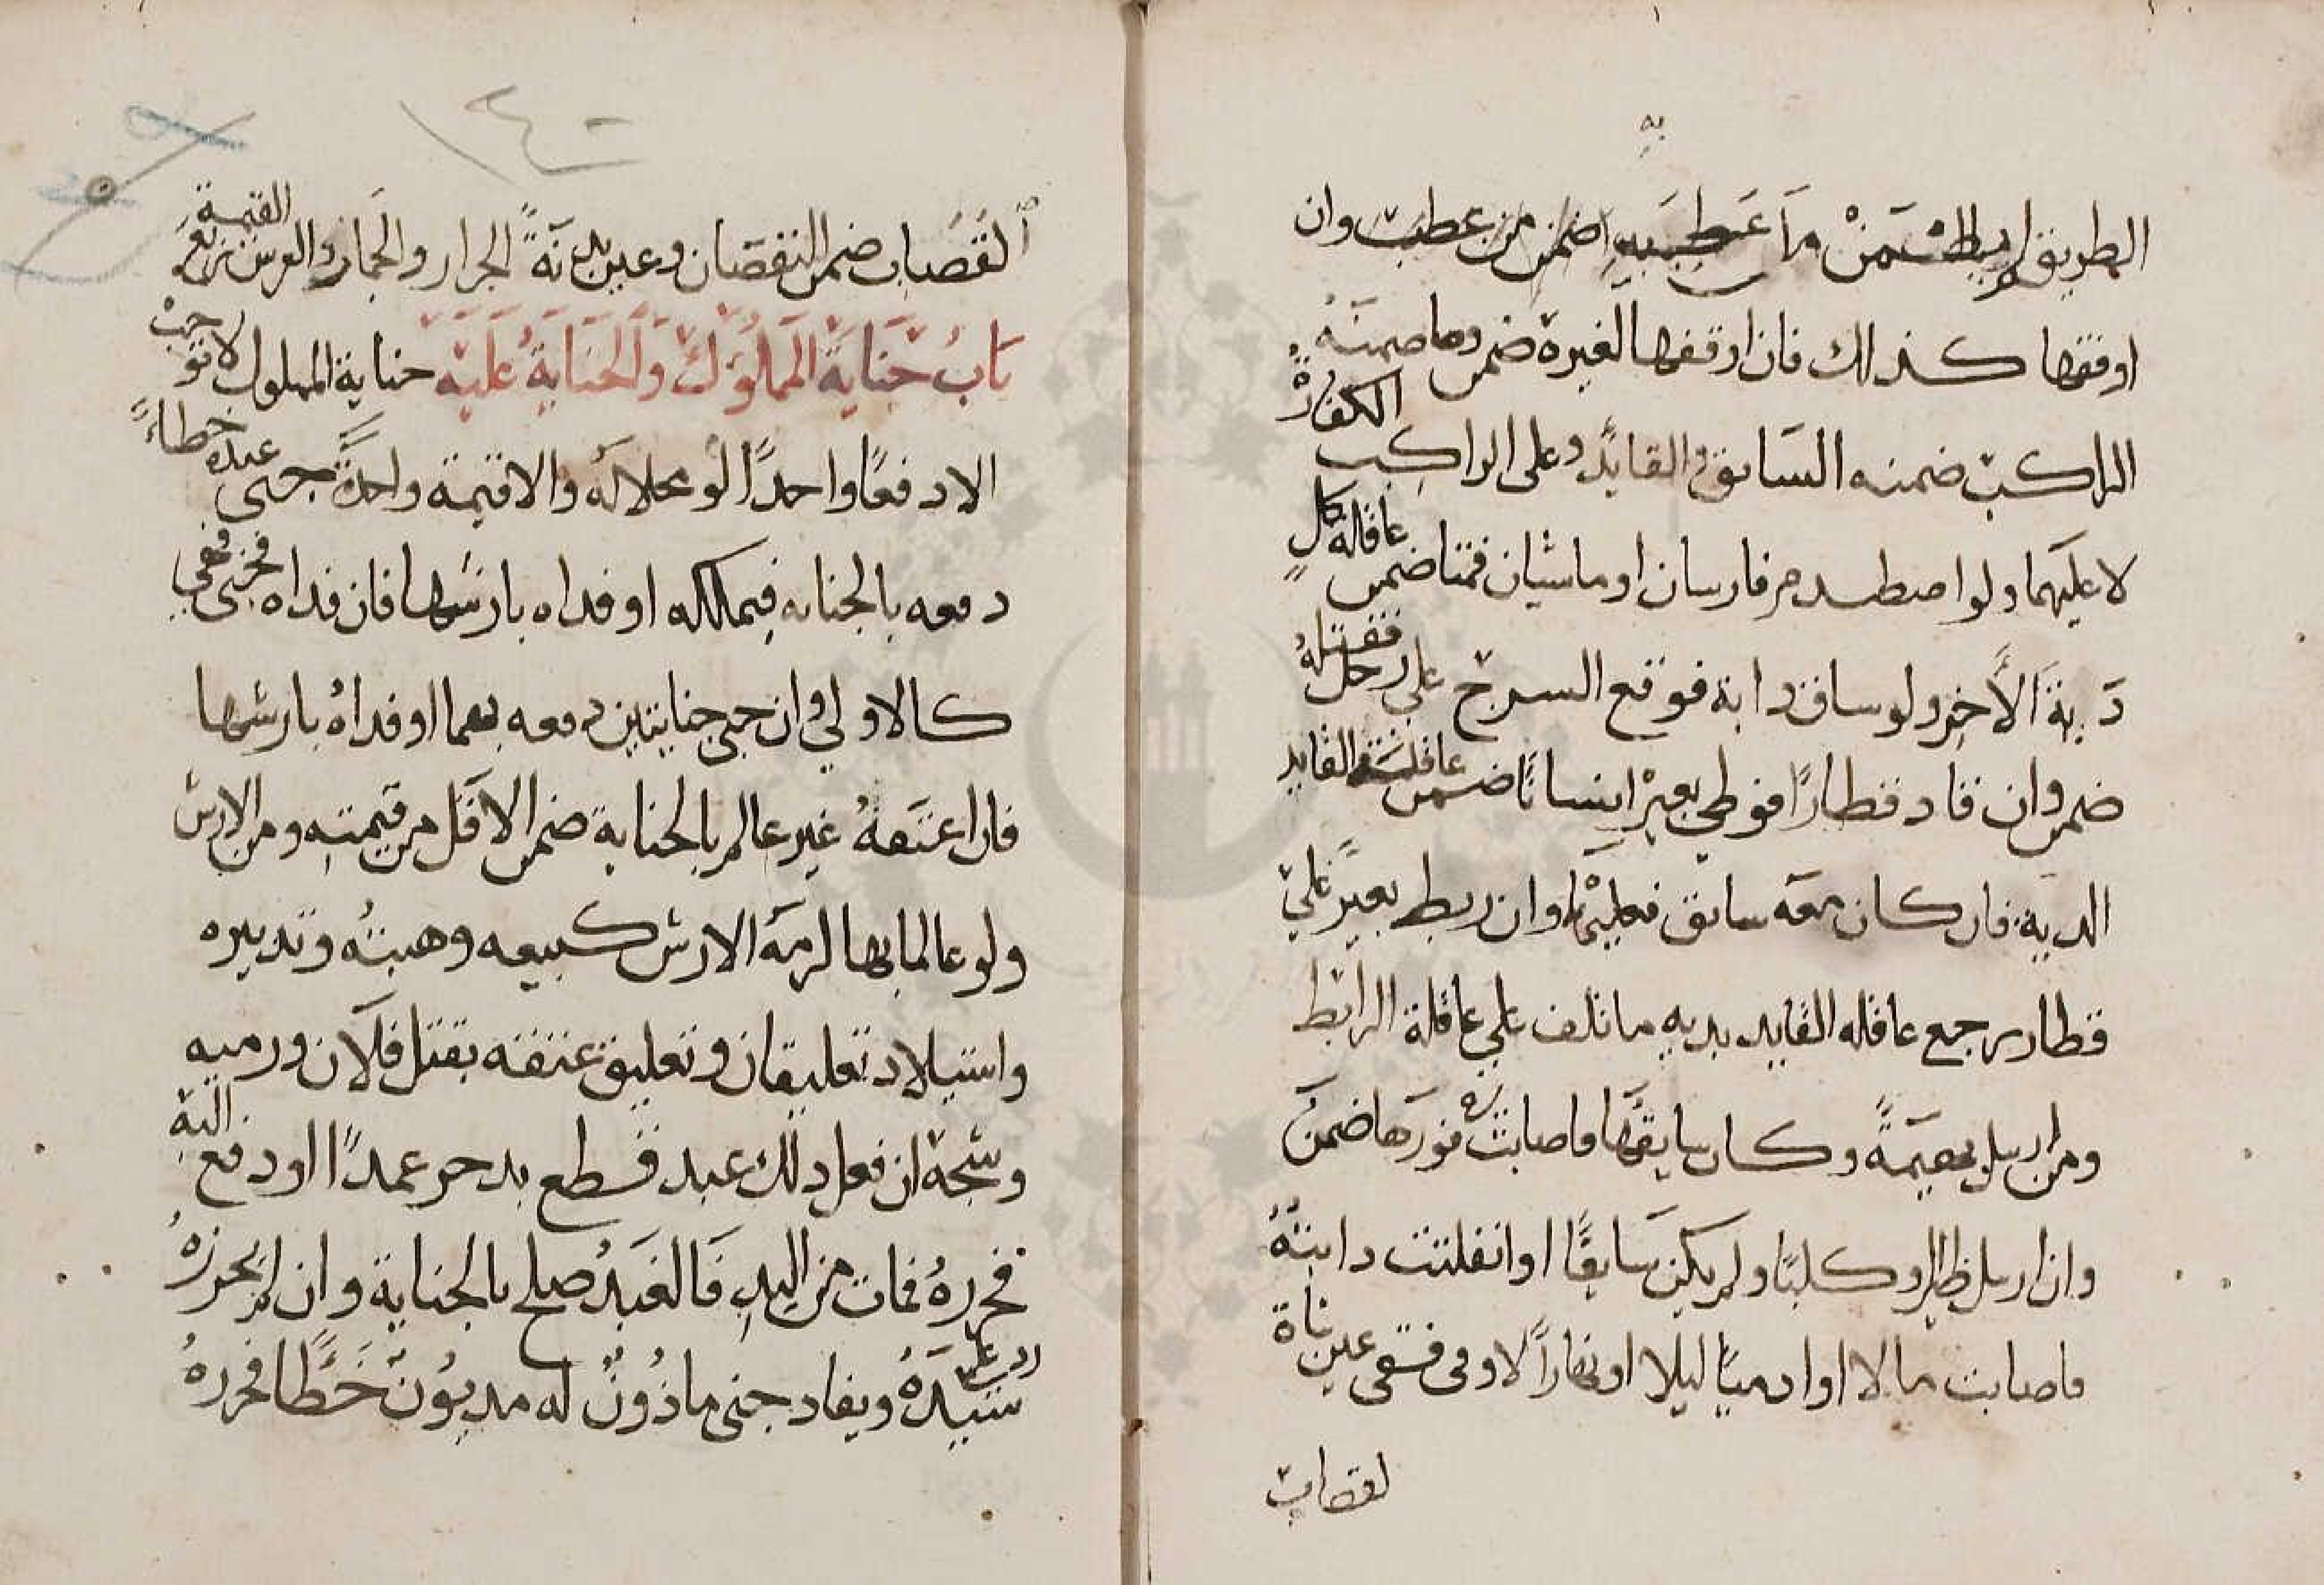 به
الطريق لم يضمن ما عطب به ضمن من عطب وان
اوقفها كذلك فان اوقفها لغيره ضمن وما ضمنه
الراكب ضمنه السايق والقايد وعلى الراكب الكفارة
لا عليهما ولو اصطدم فارسان او ماشيان فماتا ضمن عاقلة كل
دية الآخر ولو ساق دابة فوقع السرج على رجل فقتله
ضمن وان قاد قطارًا فوطي بعير انسانًا ضمن عاقلته القايد
الدية فان كان معه سايق فعليهما وان ربط بعير علي
قطار يرجع عاقله القايد بديه ما تلف علي عاقلة الرابط
ومن ارسل بهيمةً وكان سايقها فاصابت فورها ضمن
وان ارسل طايرا او كلبًا ولم يكن سايقًا او انفلتت دابته
فاصابت مالا او ادميًا ليلا او نهارًا لا وفي فقئ عين شاة
لقصاب
القصاب ضمن النقصان وعين بدنة الجزار والحمار والفرس ربع القيمة
بَابُ جِنَايَةِ المَملُوْكِ وَالجِنَايَةُ عَلَيْهِ جناية المملوك لا توجب
الا دفعًا واحدًا لو محلا له والا قيمة واحدةً جنى عبده خطاءً
دفعه بالجنايه فيملكه او فداه بارشها فان فداه فجنى فهي
كالاولي وان جنى جنايتين دفعه بهما او فداهُ بارشهما
فان اعتقهُ غير عالم بالجناية ضمن الاقل من قيمته ومن الارش
ولو عالما بها لزمه الارش كبيعه وهبته وتدبيره
واستيلاد تعليقان وتعليق عتقه بقتل فلان ورميه
وشجة ان فعل ذلك عبد قطع يد حر عمدًا او دفع اليه
فحررهُ فمات من اليدِ فالعبدُ صلح بالجناية وان لم يحررهُ
رد على سيدهُ ويقاد جنى ماذُونٌ له مديُونٌ خَطًا فحررهُ